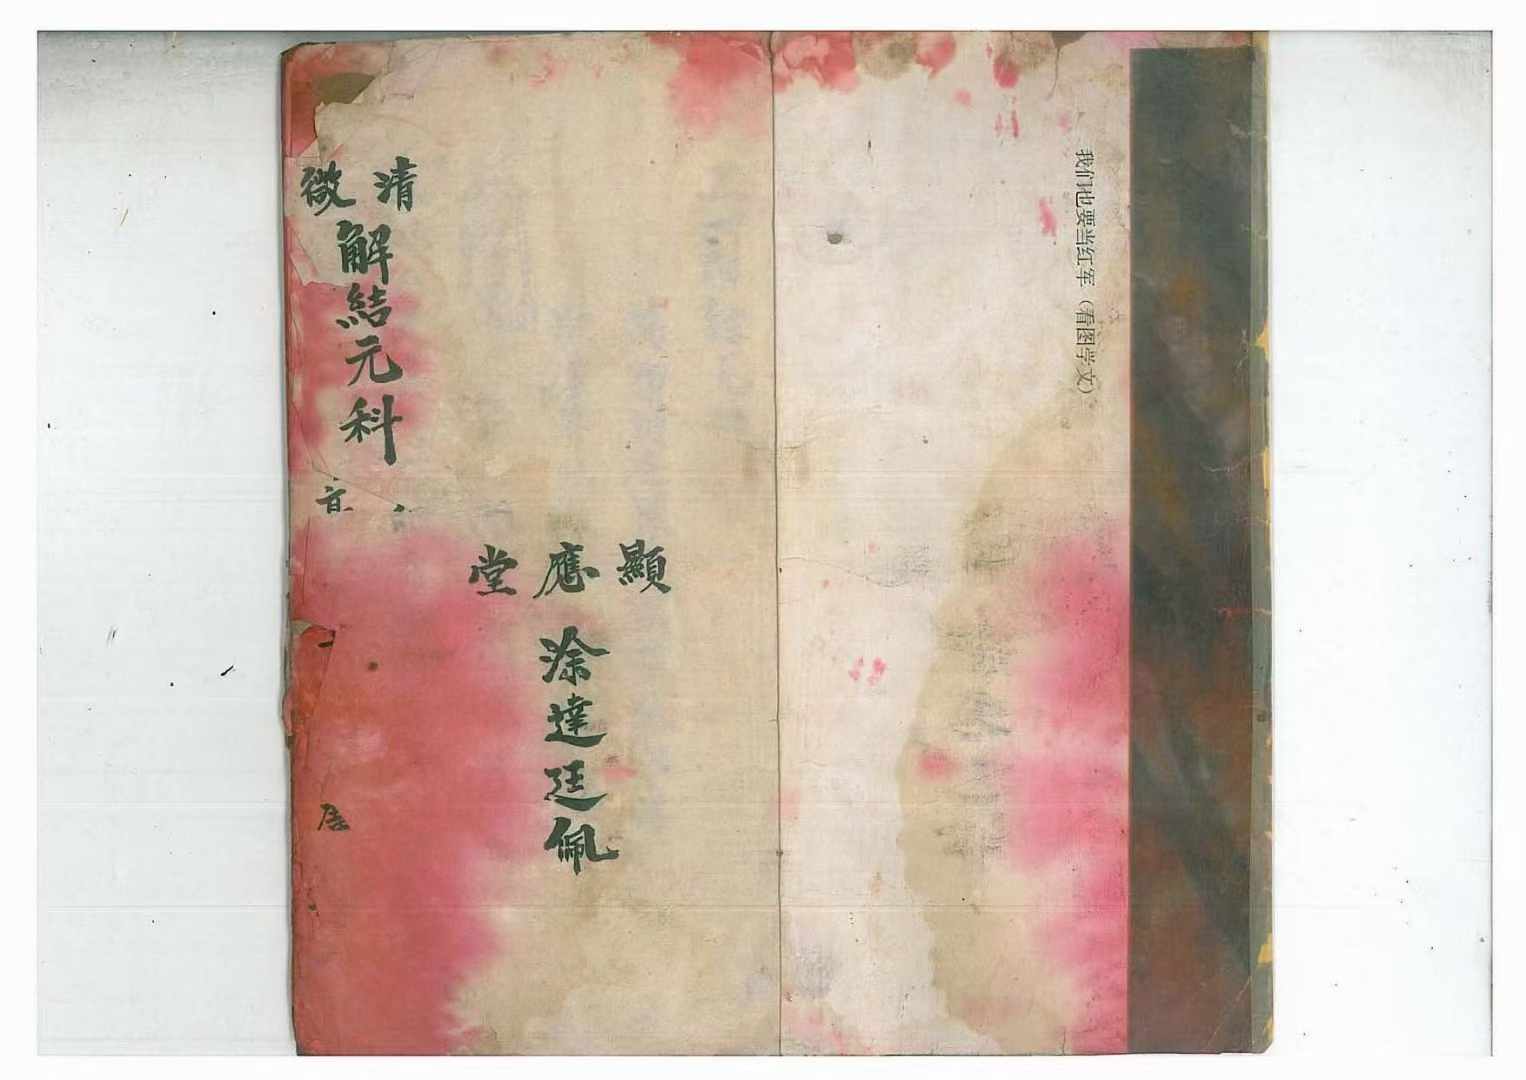 我们也要当红军（看图学文）
顯應堂
涂達廷佩
清微
解結元科